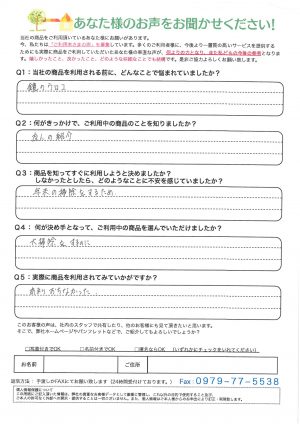 あなた様のお声をお聞かせください!
当社の商品をご利用頂いているあなた様にお願いがあります。
今、私たちは「ご利用者さまの声」を募集しています。多くのご利用者様に、今後より一層質の高いサービスを提供する
ためにも実際に商品をご利用していただいたあなた様の率直な声が、何よりの力となり、また私どもの今後の課題となり
ます。嬉しかったこと、良かったこと、どのような些細なことでも結構です。是非ご協力よろしくお願い致します。
Q1:当社の商品を利用される前に、どんなことで悩まれていましたか?
鏡のウロコ
Q2:何がきっかけで、ご利用中の商品のことを知りましたか?
友人の紹介
Q3:商品を知ってすぐに利用しようと決めましたか?
しなかったとしたら、どのようなことに不安を感じていましたか?
年末の掃除をするため
Q4:何が決め手となって、ご利用中の商品を選んでいただけましたか?
大掃除をするのに
Q5:実際に商品を利用されてみていかがですか?
あまりおちなかった
このお客様の声は、社内のスタッフで共有したり、他のお客様にも見て頂きたいと思います。
そこで、弊社ホームページやパンフレットなどで、ご紹介してもよろしいでしょうか?
□名前付きでOK □匿名ならOK (いずれかにチェックをいれてください)
お名前
ご住所
返信方法: 手渡しかFAXにてお願い致します(24時間受付ております。) Fax:0979-77-5538
個人情報保護について